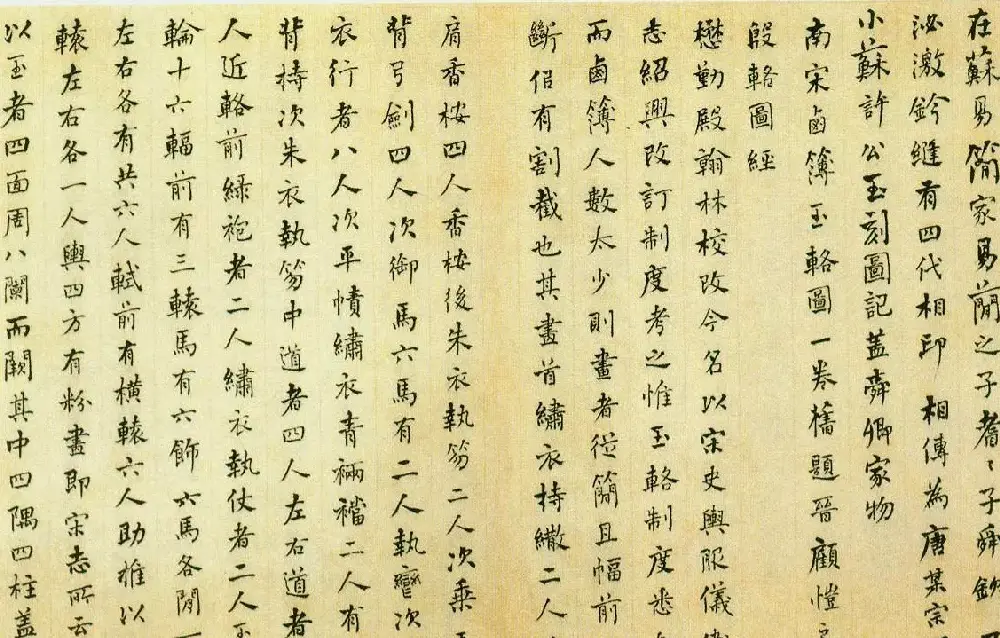 在蘇易簡家易簡之子耆〻子舜欽
泌激鈐縫有四代相印相傳為唐某宗
小蘇許公玉刻圖記蓋舜卿家物
南宋鹵簿玉輅圖一卷橋題晉顧愷
殷輅圖經
懋勤殿翰林校改今名以宋史輿服儀
志紹興改訂制度考之惟玉輅制度悉
而鹵簿人數太少則畫者從簡且幅前
斷佀有割截也其畫首繡衣持繖二人
肩香桉四人香桉後朱衣執笏二人次乗
背弓劍四人次御馬六馬有二人執轡次
衣行者八人次平幘繡衣青裲襠二人有
背椅次朱衣執笏中道者四人左右道者
人近輅前緑袍者二人繡衣執仗者二人玉
輪十六輻前有三轅馬有六飾六馬各閒
左右各有共六人軾前有橫轅六人助推以
轅左右各一人輿四方有粉畫即宋志所云
以玉者四面周八闌而闕其中四隅四柱蓋